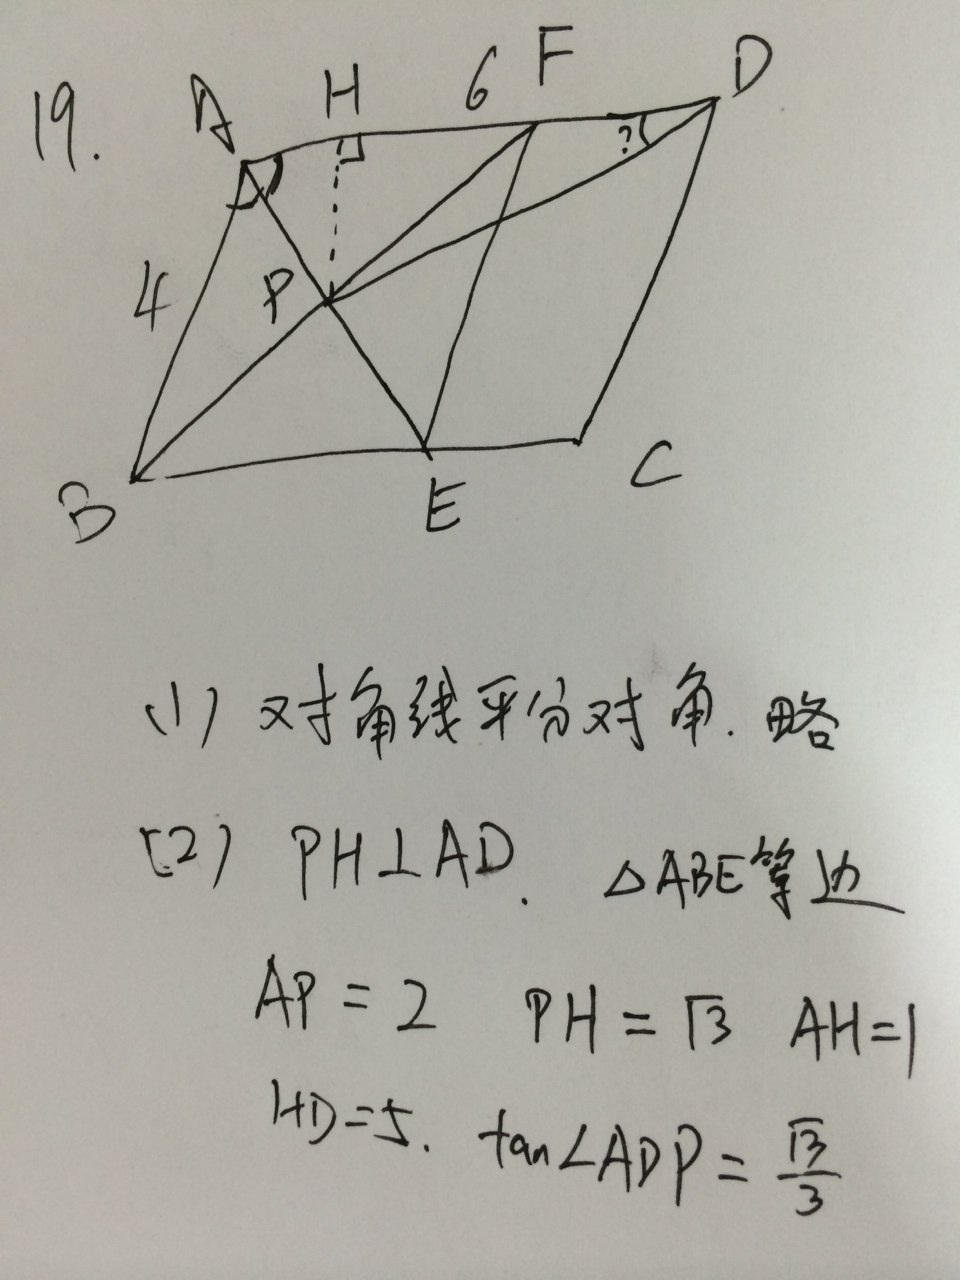 19.
A H 6 F D
?
4 P
B E C
(1) 对角线平分对角. 略
(2) PH⊥AD. △ABE等边
AP = 2 PH = √3 AH=1
HD=5. tan∠ADP = √3/3